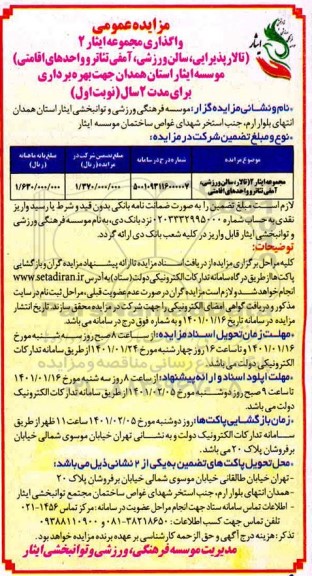 مزایده عمومی
واگذاری مجموعه ایثار ۲
(تالار پذیرایی، سالن ورزشی، آمفی تئاتر و واحدهای اقامتی)
موسسه ایثار استان همدان جهت بهره برداری
برای مدت ۲ سال (نوبت اول)
نام و نشانی مزایده گزار: موسسه فرهنگی ورزشی و توانبخشی ایثار استان همدان
انتهای بلوار ارم، جنب استخر شهدای غواص ساختمان موسسه ایثار
نوع و مبلغ تضمین شرکت در مزایده:
موضوع مزایده شماره درج در سامانه مبلغ تضمین شرکت در مزایده (ریال) مبلغ پایه ماهانه (ریال)
مجموعه ایثار ۲ (تالار، سالن ورزشی، آمفی تئاتر و واحدهای اقامتی) ۵۰۰۱۰۹۳۱۱۶۰۰۰۰۰۷ ۱/۳۷۰/۰۰۰/۰۰۰ ۱/۶۳۰/۰۰۰/۰۰۰
لازم است مبلغ تضمین را به صورت ضمانت نامه بانکی بدون قید و شرط یا رسید واریز
نقدی به حساب شماره ۰۲۰۳۳۳۲۹۹۵۰۰۰ نزد بانک دی، به نام موسسه فرهنگی ورزشی
و توانبخشی ایثار قابل واریز در کلیه شعب بانک دی ارائه گردد.
توضیحات:
کلیه مراحل برگزاری مزایده از دریافت اسناد مزایده تا ارائه پیشنهاد مزایده گران و بازگشایی
پاکت ها از طریق درگاه سامانه تدارکات الکترونیکی دولت (ستاد) به آدرس www.setadiran.ir
انجام خواهد شد و لازم است مزایده گران در صورت عدم عضویت قبلی، مراحل ثبت نام در سایت
مذکور و دریافت گواهی امضای الکترونیکی را جهت شرکت در مزایده محقق سازند. تاریخ انتشار
مزایده در سامانه تاریخ ۱۴۰۱/۰۱/۱۶ و به شماره فوق درج در سامانه می باشد.
مهلت زمان تحویل اسناد مزایده: از ساعت ۸ صبح روز سه شنبه مورخ
۱۴۰۱/۰۱/۱۶ و تا ساعت ۱۶ روز چهارشنبه مورخ ۱۴۰۱/۰۱/۲۴ از طریق سامانه تدارکات
الکترونیکی دولت می باشد.
مهلت آپلود اسناد و ارائه پیشنهاد: از ساعت ۸ روز سه شنبه مورخ ۱۴۰۱/۰۱/۱۶
تا ساعت ۹ صبح روز دوشنبه مورخ ۱۴۰۱/۰۲/۰۵ از طریق سامانه تدارکات الکترونیک
دولت می باشد.
زمان بازگشایی پاکت ها: روز دوشنبه مورخ ۱۴۰۱/۰۲/۰۵ ساعت ۱۱ ظهر از طریق
سامانه تدارکات الکترونیک دولت و به نشانی تهران خیابان موسوی شمالی خیابان
برفروشان پلاک ۲۰ می باشد.
محل تحویل پاکت های تضمین به یکی از ۲ نشانی ذیل می باشد:
- تهران خیابان طالقانی خیابان موسوی شمالی خیابان برفروشان پلاک ۲۰
- همدان انتهای بلوار ارم، جنب استخر شهدای غواص ساختمان مجتمع توانبخشی ایثار
- اطلاعات تماس سامانه ستاد جهت انجام مراحل عضویت در سامانه: مرکز تماس ۱۴۵۶-۰۲۱
تلفن تماس جهت کسب اطلاعات: ۳۸۲۱۸۶۵۰-۰۸۱ و ۰۹۳۸۸۱۱۰۹۰۰
تذکر: هزینه درج آگهی و حق الزحمه کارشناسی بر عهده برنده مزایده خواهد بود.
مدیریت موسسه فرهنگی، ورزشی و توانبخشی ایثار